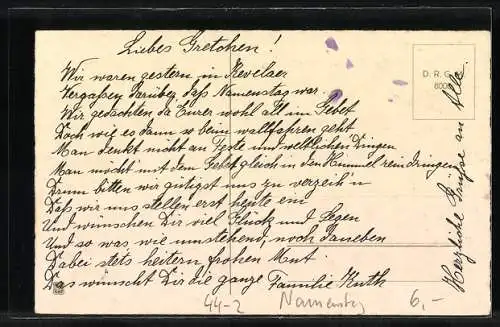 Liebes Gretchen!
Wir waren gestern in Kevelaer
Vergaßen darüber, daß Namenstag war.
Wir gedachten da Eurer wohl all im Gebet
Doch wie es dann so beim wallfahren geht
Man denkt nicht an Feste und weltlichen Dingen
Man möcht mit dem Fest gleich in den Himmel rein dringen
Drum bitten wir gütigst uns zu verzeih'n
Daß wir uns stellen erst heute ein
Und wünschen Dir viel Glück und Segen
Und so was wie umstehend, noch daneben
Dabei stets heitern frohen Mut.
Das wünscht Dir die ganze Familie Kuth
Herzliche Grüße an Alle.
D. R. G.
44-2 Namenstag 6,-